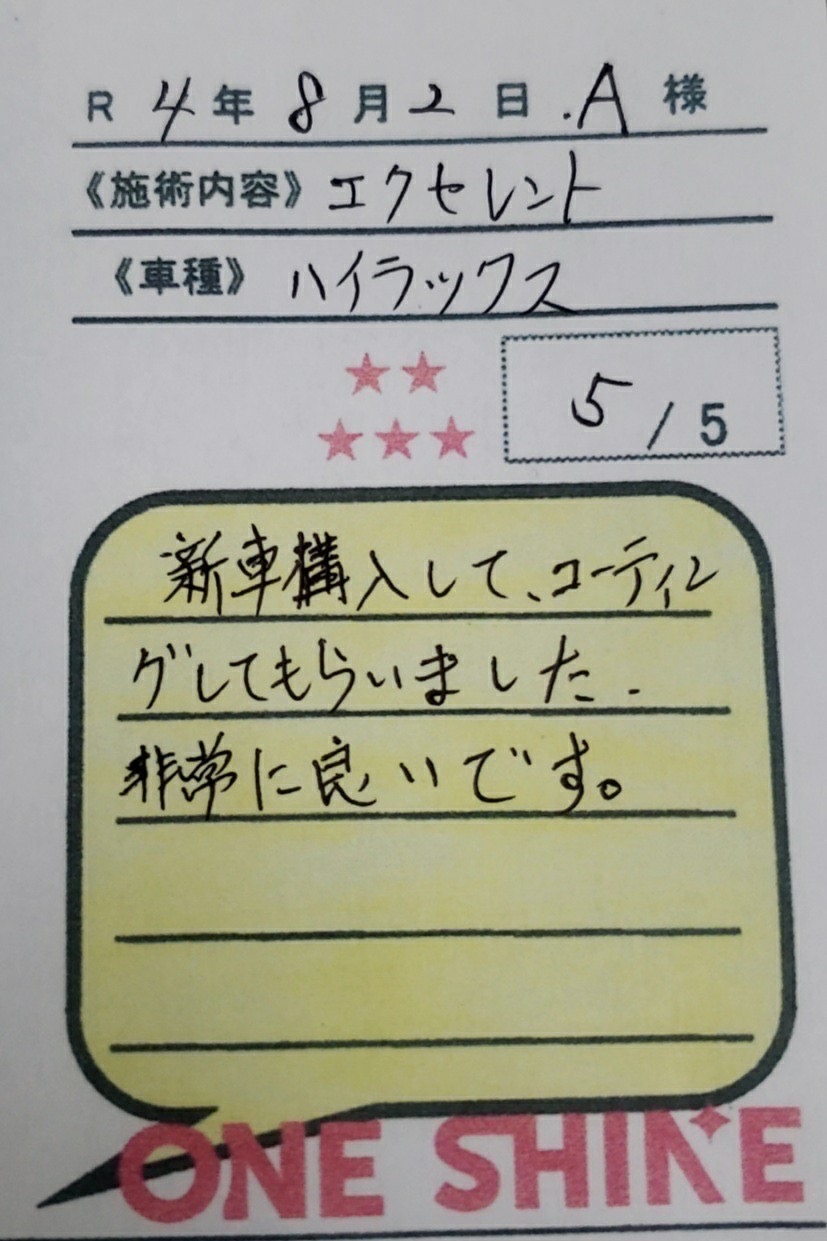 R 4年 8月2日 .A 様
《施術内容》エクセレント
《車種》ハイラックス
5/5
新車購入して、コーティン
グしてもらいました.
非常に良いです。
ONE SHINE